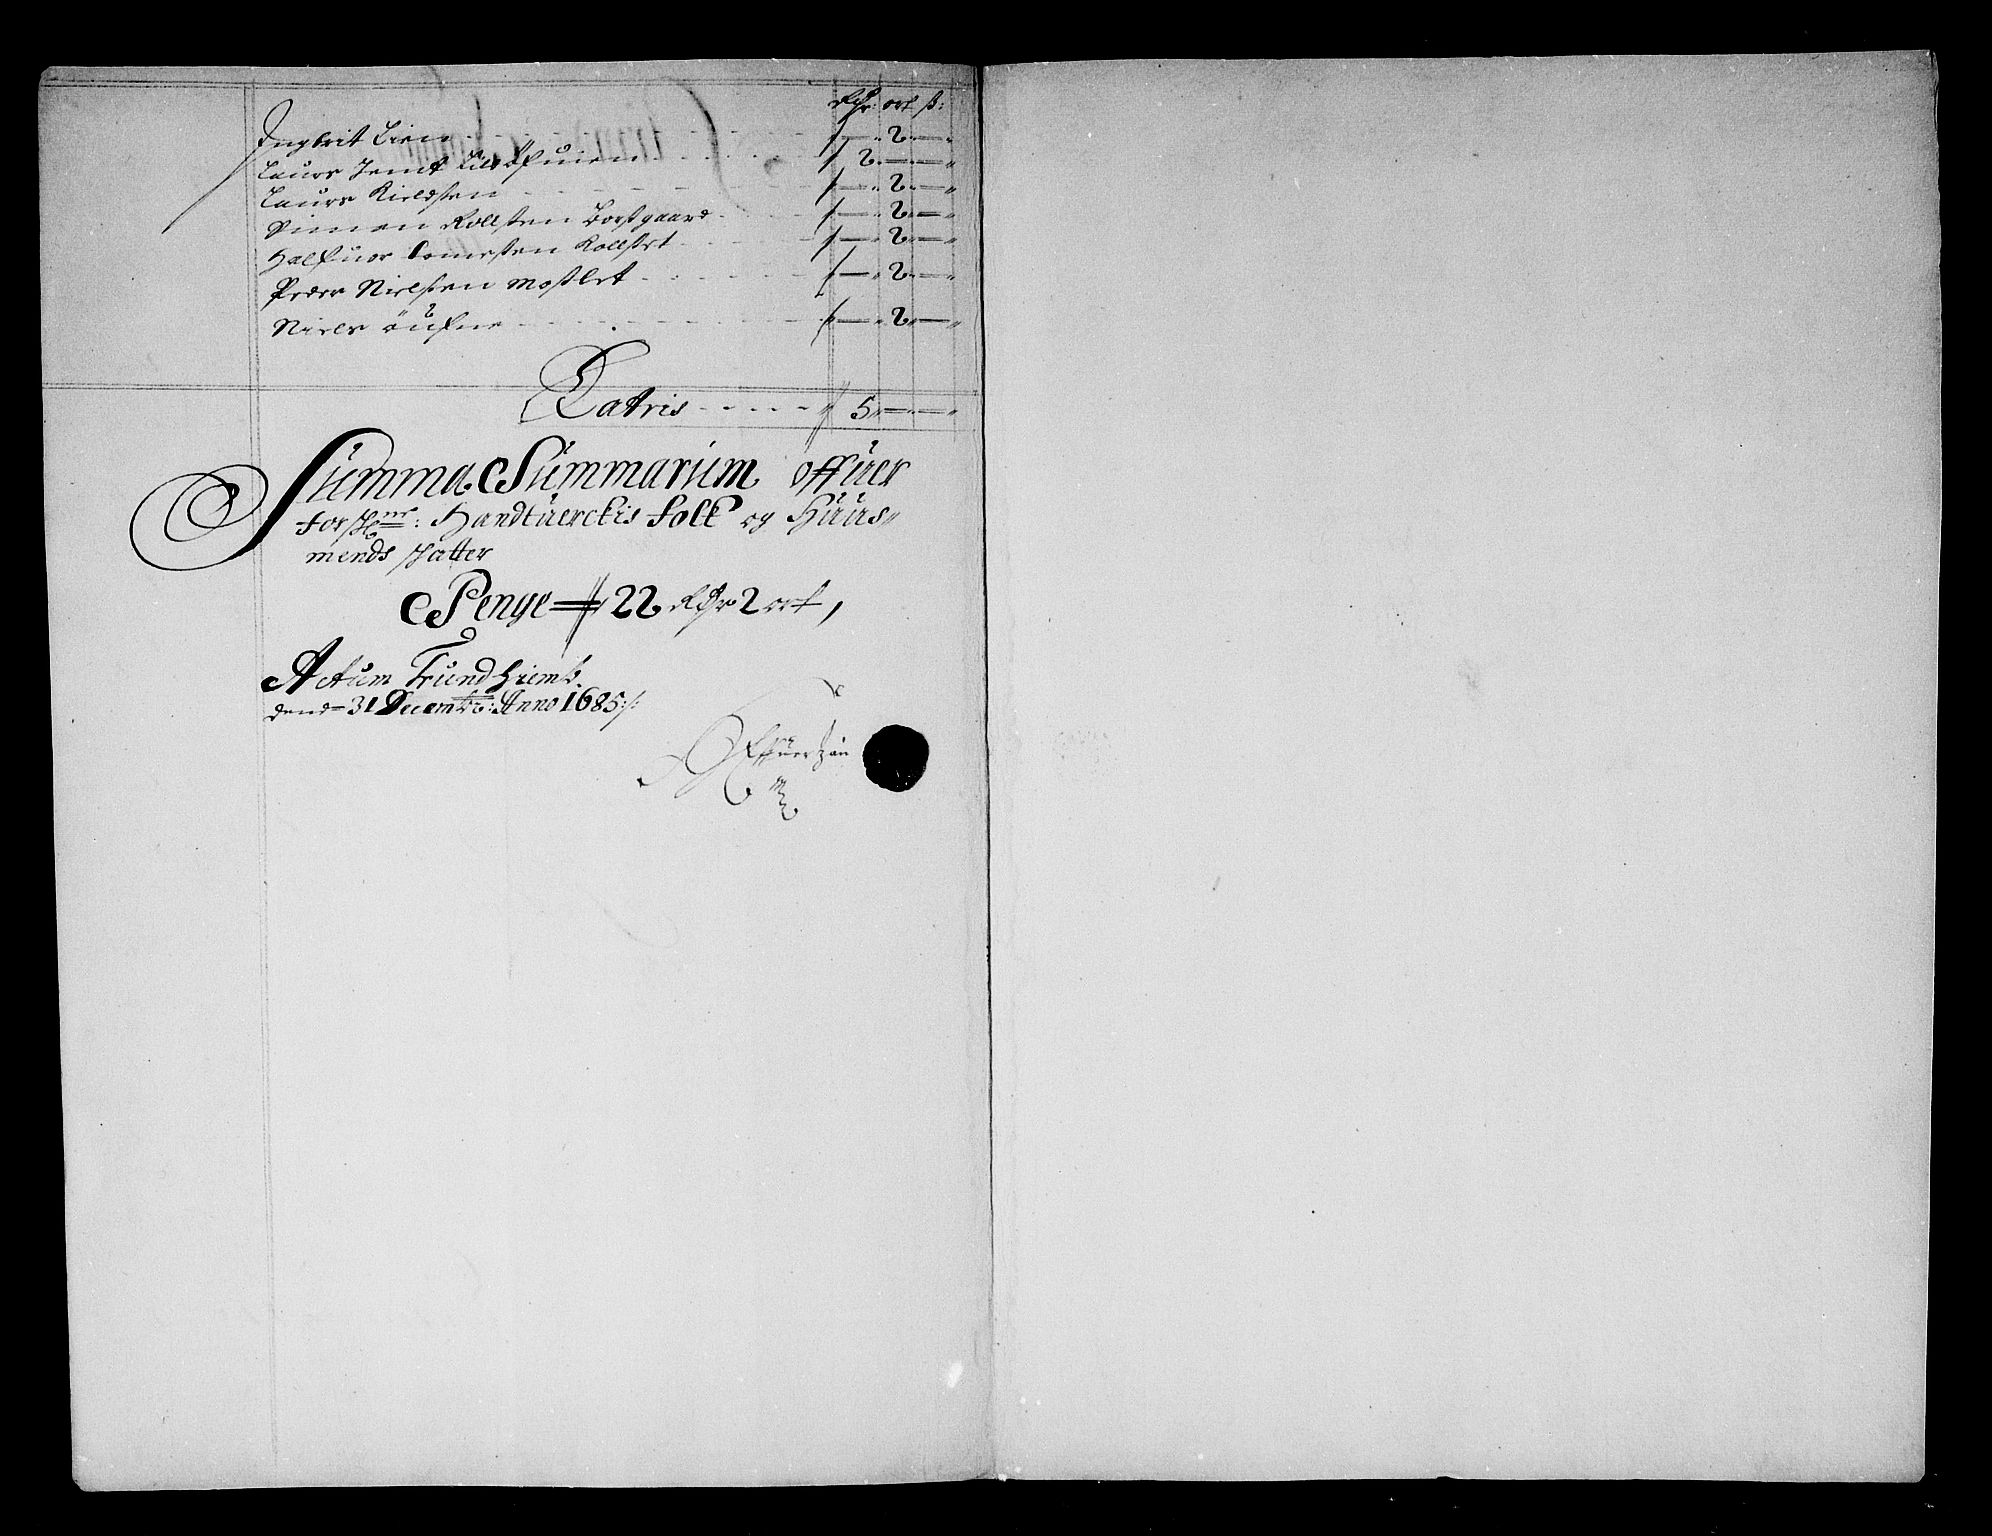 Rdr: ort ß:
Ingbrit Lien - - - - - - - - - - - „ 2 „ — „
Laurs Jemt - - - - - 2 „ — „ — „
Laurs Kieldsen - - - - - - - - - — „ 2 „ — „
Simen Rollsten Borsgaard - - - - — „ 2 „ — „
Halfuor Tomesen Kollset - - - - - — „ 2 „ — „
Peder Nielsen Moslet - - - - - — „ 2 „ — „
Niels - - - - - - - - — „ 2 „ — „
Latris - - - - - „ 5 „ — „ — „
Summa Summarum offuer
forsk: Handtuerckis folk og Huus„
mends skatter
Penge — 22 Rdr 2 ort,
Actum Trundhiemb.
dend 31 Decembr: Anno 1685:/: